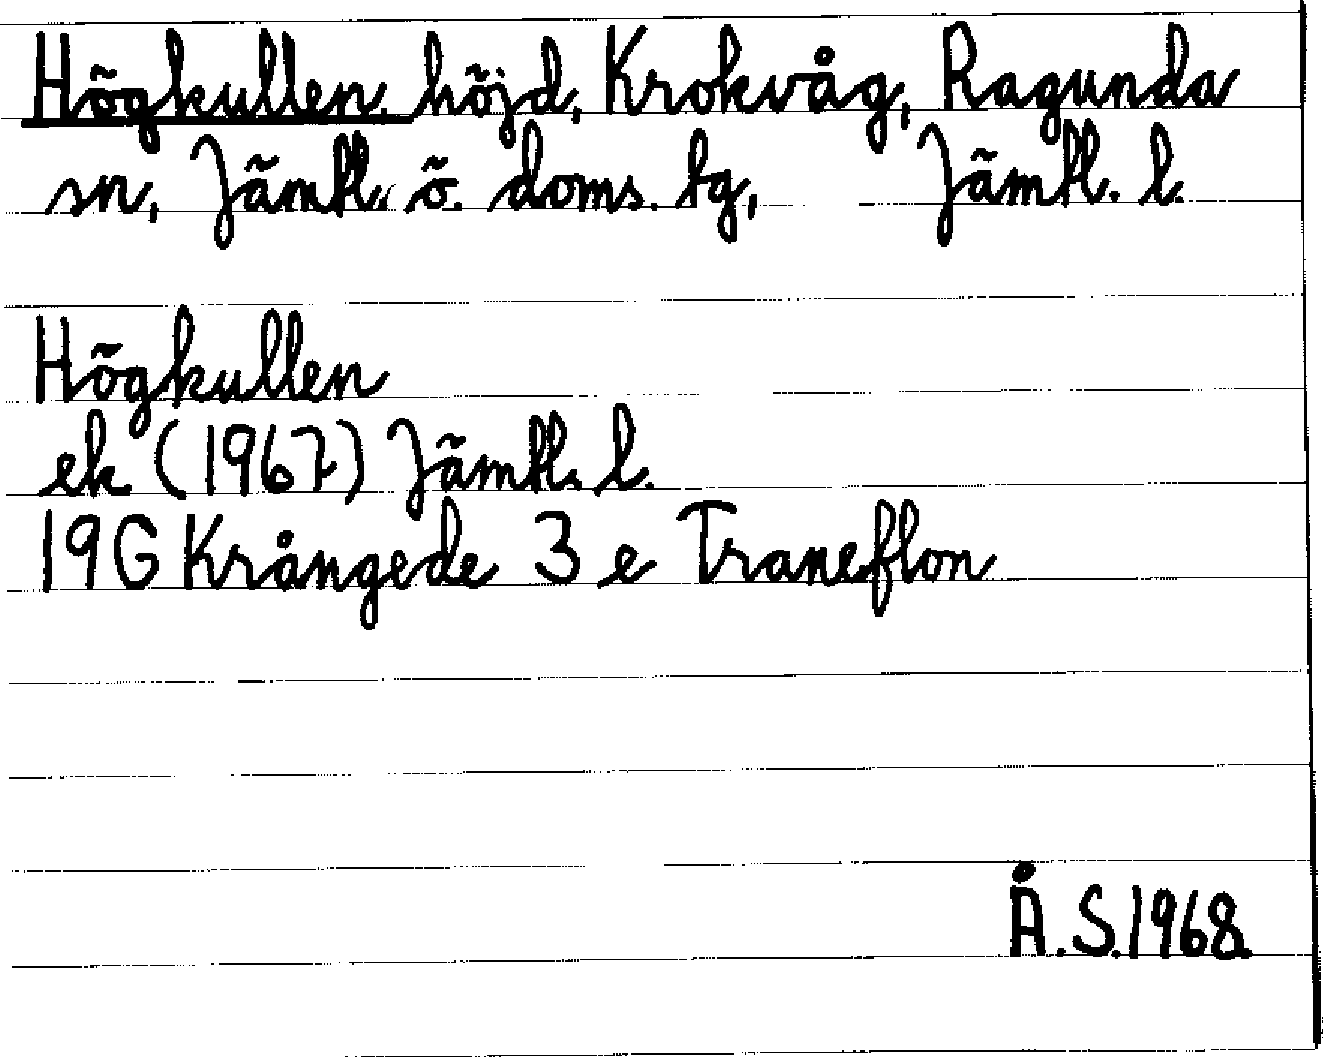 Högkullen, höjd, Krokvåg, Ragunda
sn, Jämtl. ö. doms. tg, Jämtl. l.
Högkullen
ek (1967) Jämtl. l.
19G Krångede 3 e Traneflon
Å.S.1968.